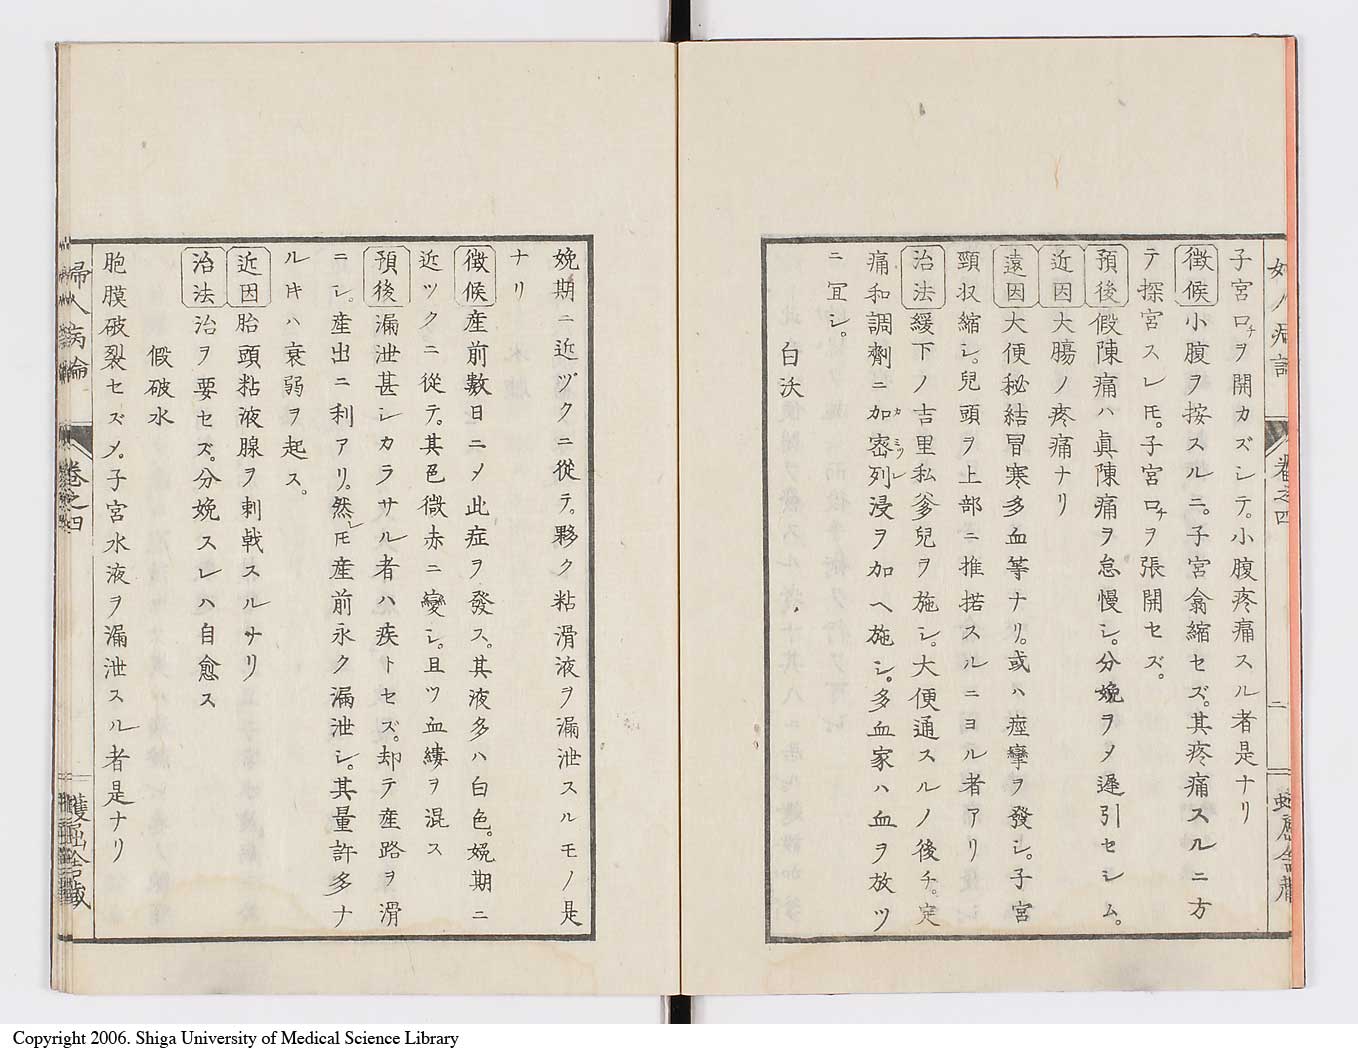 子宮口チヲ開カズシテ。小腹疼痛スル者是ナリ
徴候 小腹ヲ按スルニ。子宮翕縮セズ。其疼痛スルニ方
テ探宮スレㇳモ。子宮口チヲ張開セズ。
預後 假陳痛ハ眞陳痛ヲ怠慢シ。分娩ヲメ遲引セシム。
近因 大膓ノ疼痛ナリ
遠因 大便秘結冒寒多血等ナリ。或ハ痙攣ヲ發シ。子宮
頸収縮シ。兒頭ヲ上部ニ推㨗スルニヨル者アリ
治法 緩下ノ吉里私爹兒ヲ施シ。大便通スルノ後チ。定
痛和調劑ニ加密列浸ヲ加ヘ施シ。多血家ハ血ヲ放ツ
ニ冝シ。
白沃
婦人病論
卷之四
二
娩期ニ近ヅクニ從テ。夥ク粘滑液ヲ漏泄スルモノ是
ナリ
徴候 産前數日ニメ此症ヲ發ス。其液多ハ白色。娩期ニ
近ツクニ從テ。其色微赤ニ變シ。且ツ血縷ヲ混ス
預後 漏泄甚シカラサル者ハ疾トセズ。却テ産路ヲ滑
ニシ。産出ニ利アリ。然レㇳモ産前永ク漏泄シ。其量許多ナ
ルㇳキハ衰弱ヲ起ス。
近因 胎頭粘液腺ヲ刺戟スルナリ
治法 治ヲ要セズ。分娩スレハ自愈ス
假破水
胞膜破裂セズメ。子宮水液ヲ漏泄スル者是ナリ
婦人病論
卷之四
Copyright 2006. Shiga University of Medical Science Library